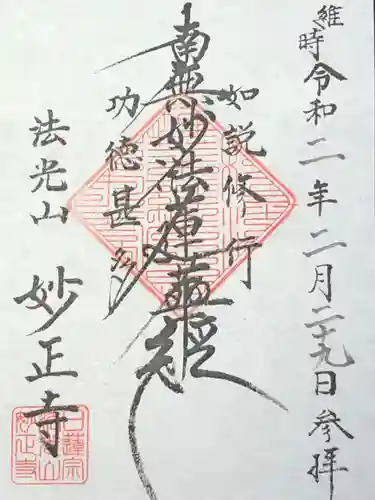 維時令和二年二月二十九日参拝
如説修行
南無妙法蓮華経
功徳甚多
法光山
妙正寺
日蓮宗
法光山
妙正寺